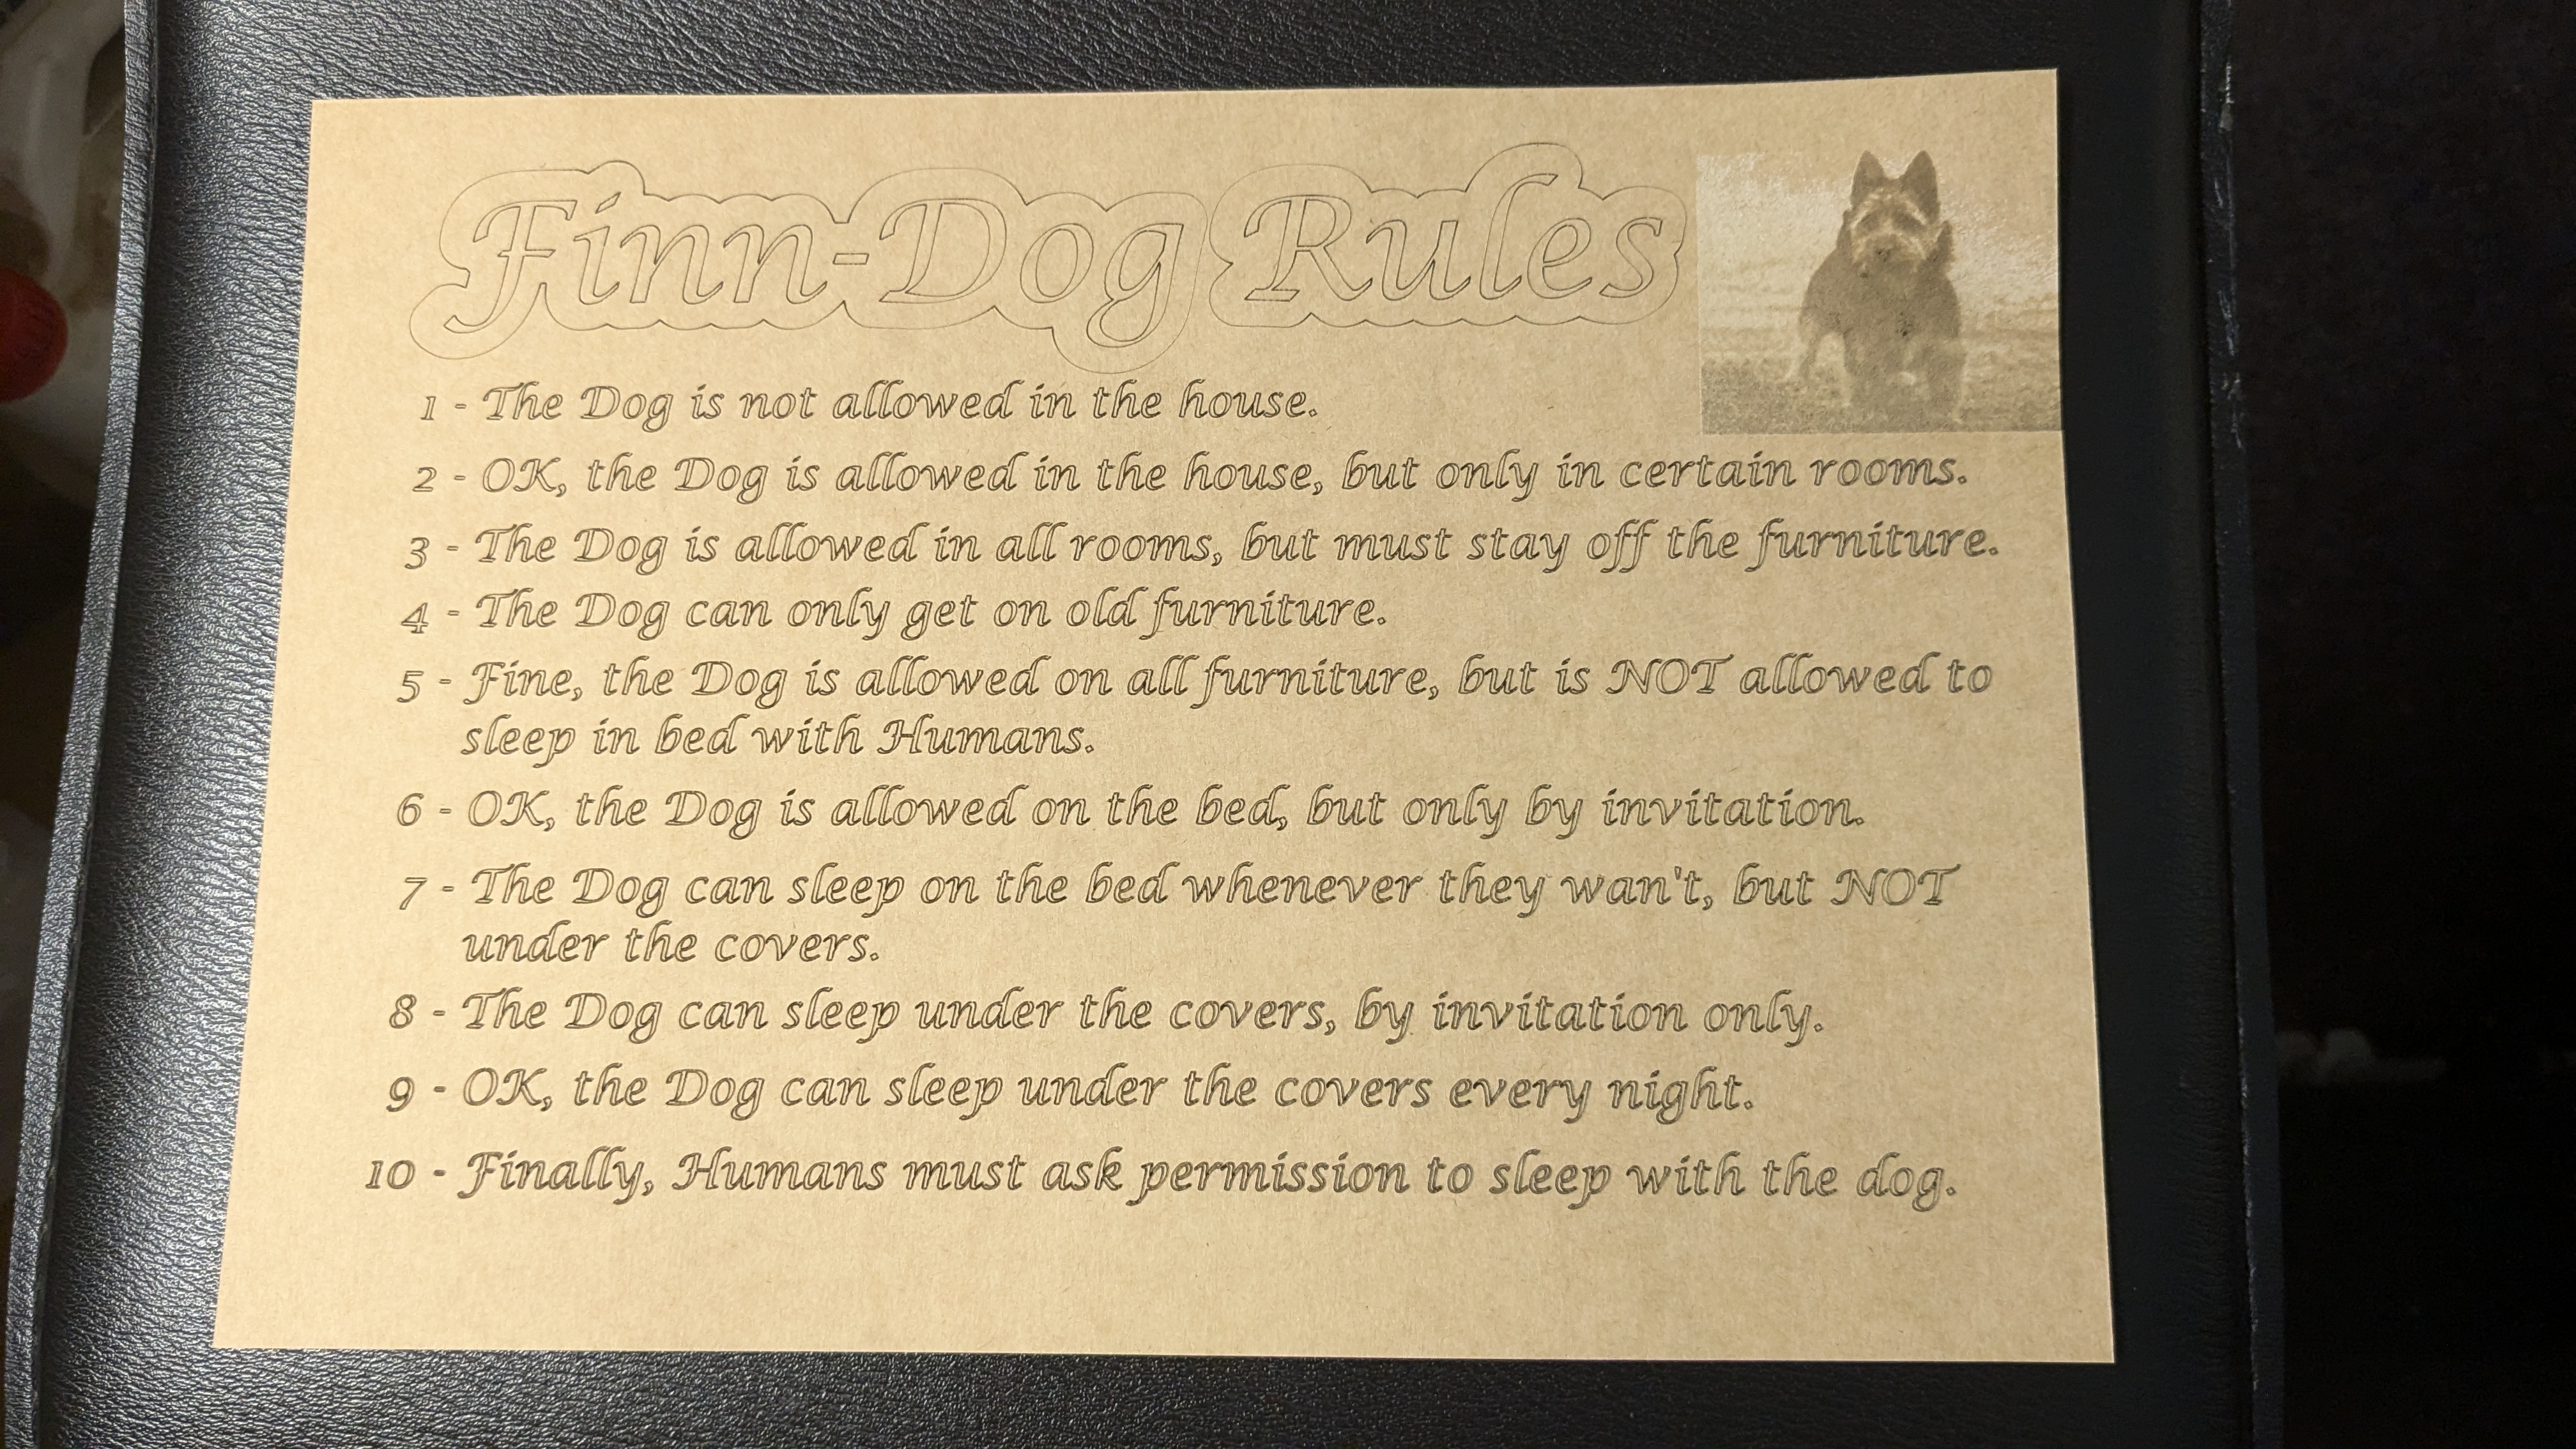 Finn-Dog Rules
1 - The Dog is not allowed in the house.
2 - OK, the Dog is allowed in the house, but only in certain rooms.
3 - The Dog is allowed in all rooms, but must stay off the furniture.
4 - The Dog can only get on old furniture.
5 - Fine, the Dog is allowed on all furniture, but is NOT allowed to
sleep in bed with Humans.
6 - OK, the Dog is allowed on the bed, but only by invitation.
7 - The Dog can sleep on the bed whenever they wan't, but NOT
under the covers.
8 - The Dog can sleep under the covers, by invitation only.
9 - OK, the Dog can sleep under the covers every night.
10 - Finally, Humans must ask permission to sleep with the dog.